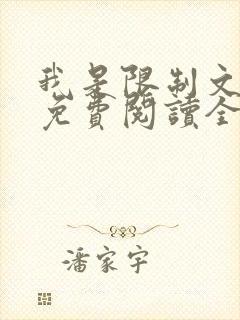 我是限制文
免費閱讀全
潘家宇